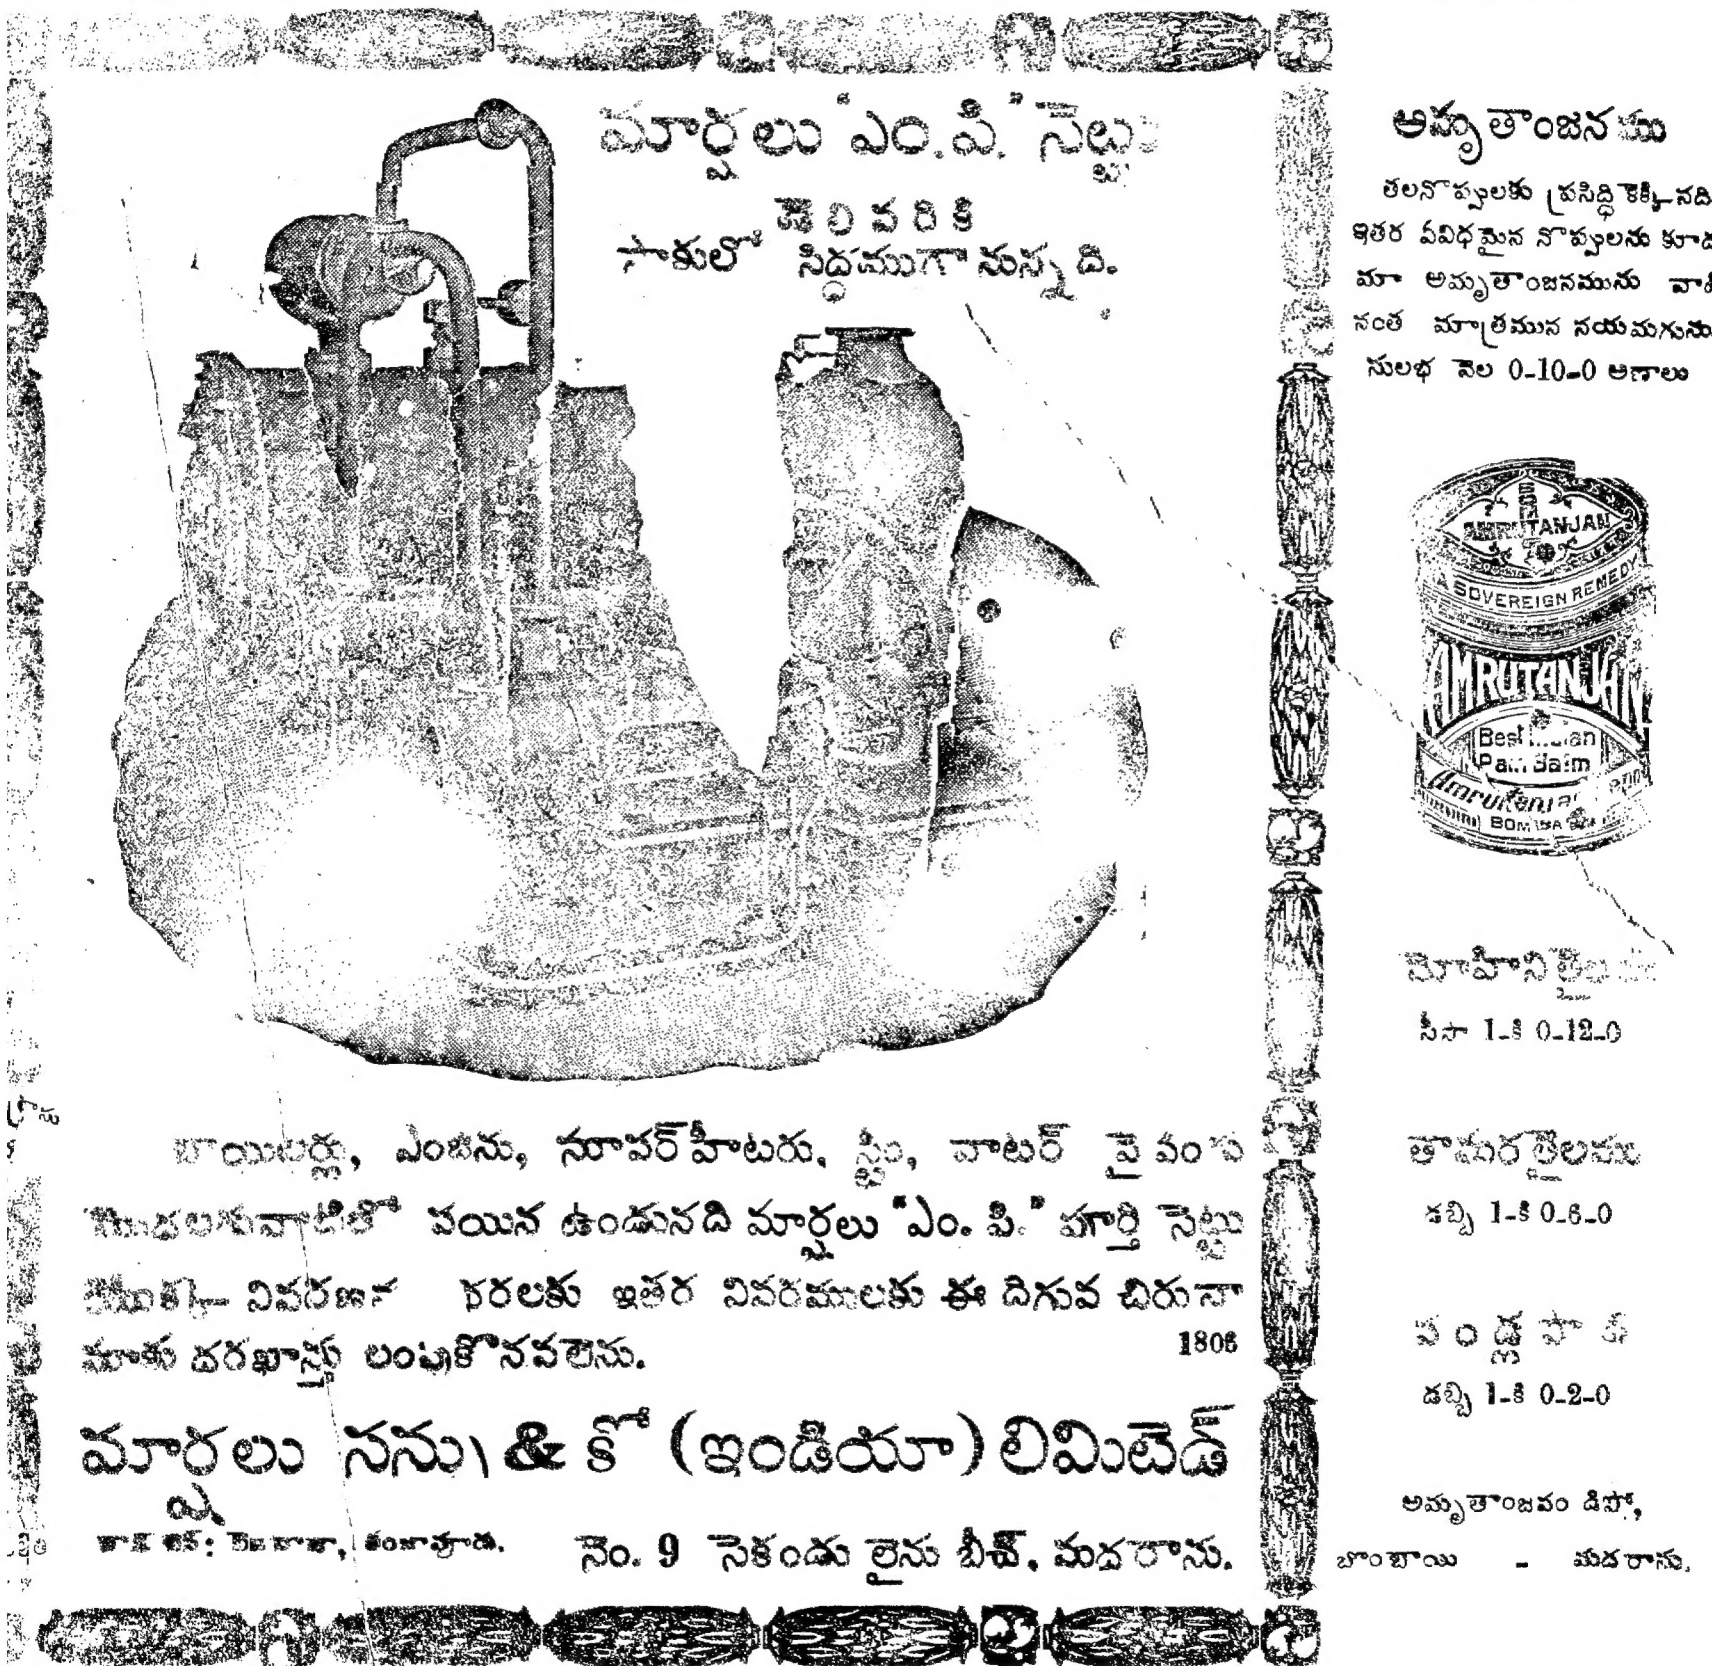 మార్షలు "ఎం.పి." సెట్టు
డెలివరికి
స్టాకులో సిద్ధముగా నున్నది.
బాయిలర్లు, ఎంజిను, సూపర్ హీటరు, స్టీం, వాటర్ పైవంపు
మొదలగువాటితో వయిన ఉండునది మార్షలు "ఎం. పి." పూర్తి సెట్టు
యొక్క వివరణన ధరలకు ఇతర వివరములకు ఈ దిగువ చిరునా
మాకు దరఖాస్తు లంపుకొనవలెను.
1806
మార్షలు సన్సు & కో (ఇండియా) లిమిటెడ్
బ్రాంచ్ బెజవాడా, తంజావూరు.
నెం. 9 సెకండు లైను బీచ్, మదరాసు.
అమృతాంజనము
తలనొప్పులకు ప్రసిద్ధికెక్కినది
ఇతర ఏవిధమైన నొప్పులను కూడ
మా అమృతాంజనమును వాడి
నంత మాత్రమున నయమగును
సులభ వెల 0-10-0 అణాలు
AMRUTANJAN
SOVEREIGN REMEDY
AMRUTANJAN
Best Indian
Pain Balm
Amrutanjan
BOMBAY
మోహినితైలము
సీసా 1-కి 0-12-0
తామరతైలము
డబ్బి 1-కి 0-6-0
పండ్లపొడి
డబ్బి 1-కి 0-2-0
అమృతాంజనం డిపో,
బొంబాయి - మదరాసు.